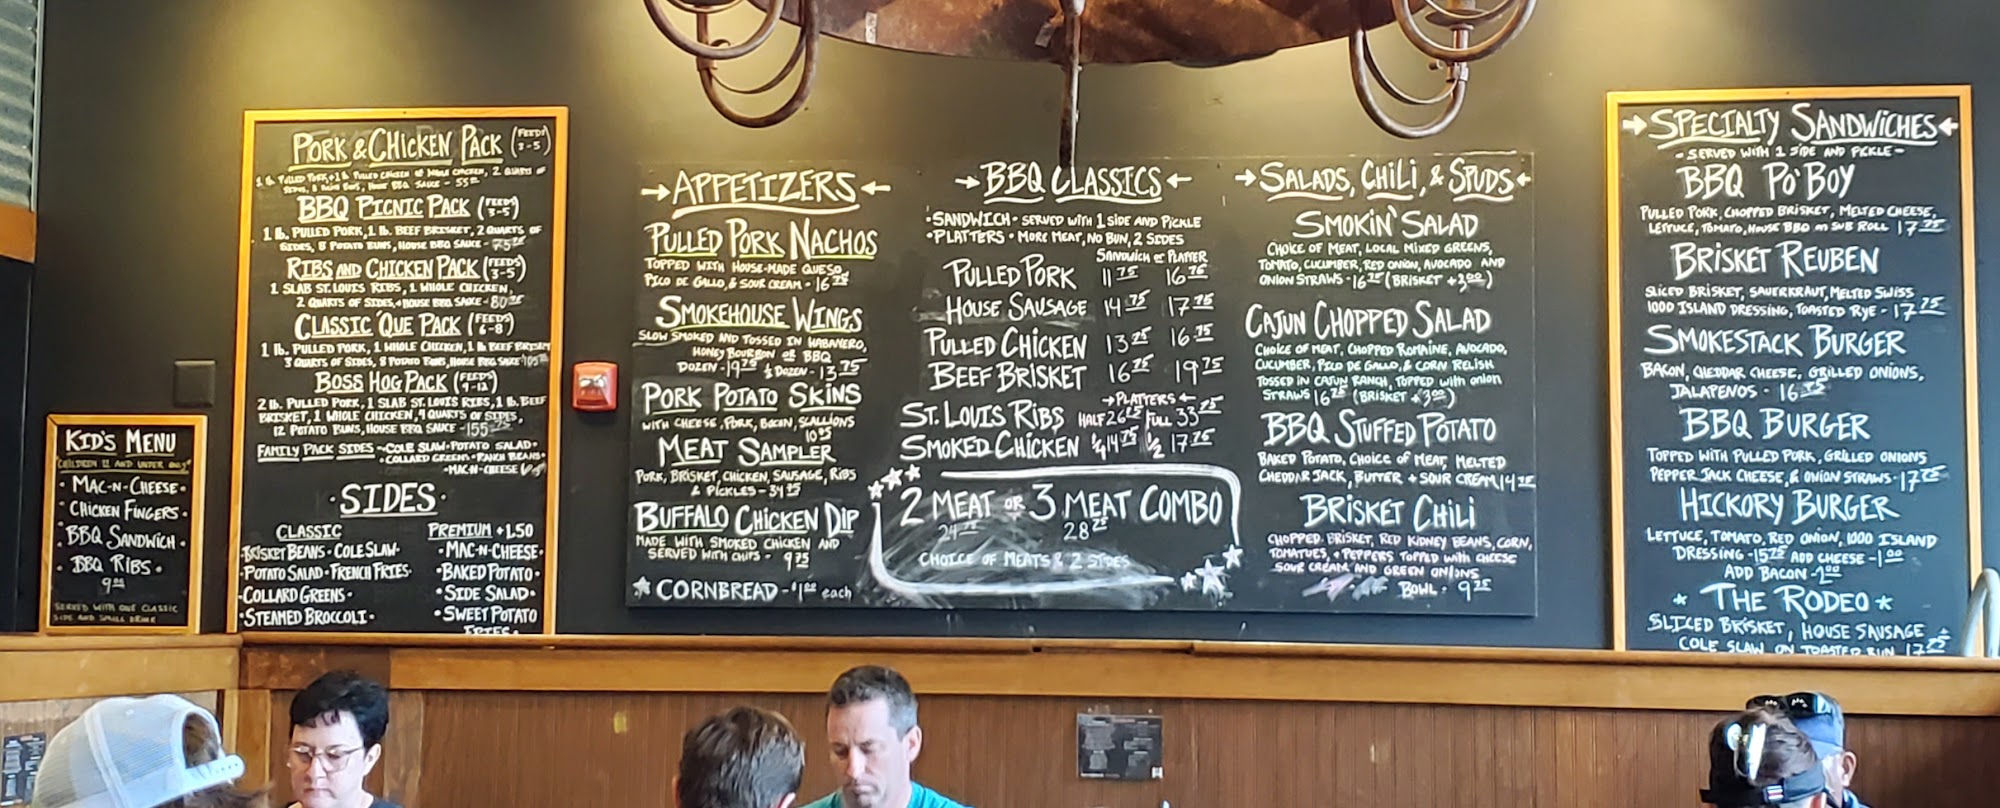 KID'S MENU
CHILDREN 12 AND UNDER ONLY
• MAC-N-CHEESE •
• CHICKEN FINGERS •
• BBQ SANDWICH •
• BBQ RIBS •
SERVED WITH ONE CLASSIC
SIDE AND SMALL DRINK
PORK & CHICKEN PACK (FEEDS 3-5)
1 lb. PULLED PORK, 1 lb. PULLED CHICKEN OR WHOLE CHICKEN, 2 QUARTS OF
HOUSE BBQ SAUCE -
BBQ PICNIC PACK (FEEDS 3-5)
1 lb. PULLED PORK, 1 lb. BEEF BRISKET, 2 QUARTS OF
SIDES, 8 POTATO BUNS, HOUSE BBQ SAUCE -
RIBS AND CHICKEN PACK (FEEDS 3-5)
1 SLAB ST. LOUIS RIBS, 1 WHOLE CHICKEN,
2 QUARTS OF SIDES, + HOUSE BBQ SAUCE -
CLASSIC 'QUE PACK (FEEDS 6-8)
1 lb. PULLED PORK, 1 WHOLE CHICKEN, 1 lb. BEEF BRISKET
3 QUARTS OF SIDES, 8 POTATO BUNS, HOUSE BBQ SAUCE -
BOSS HOG PACK (FEEDS 9-12)
2 lb. PULLED PORK, 1 SLAB ST. LOUIS RIBS, 1 lb. BEEF
BRISKET, 1 WHOLE CHICKEN, 4 QUARTS OF SIDES,
12 POTATO BUNS, HOUSE BBQ SAUCE - 155.75
FAMILY PACK SIDES - COLE SLAW • POTATO SALAD •
• COLLARD GREENS • RANCH BEANS •
• MAC-N-CHEESE
• SIDES •
CLASSIC
• BRISKET BEANS • COLE SLAW •
• POTATO SALAD • FRENCH FRIES •
• COLLARD GREENS •
• STEAMED BROCCOLI •
PREMIUM +1.50
• MAC-N-CHEESE •
• BAKED POTATO •
• SIDE SALAD •
• SWEET POTATO
FRIES •
→ APPETIZERS ←
PULLED PORK NACHOS
TOPPED WITH HOUSE-MADE QUESO,
PICO DE GALLO, & SOUR CREAM - 16.75
SMOKEHOUSE WINGS
SLOW SMOKED AND TOSSED IN HABANERO,
HONEY BOURBON OR BBQ
DOZEN - 19.75 ½ DOZEN - 13.75
PORK POTATO SKINS
WITH CHEESE, PORK, BACON, SCALLIONS
10.95
MEAT SAMPLER
PORK, BRISKET, CHICKEN, SAUSAGE, RIBS
& PICKLES - 34.25
BUFFALO CHICKEN DIP
MADE WITH SMOKED CHICKEN AND
SERVED WITH CHIPS - 9.75
★ CORNBREAD - $1.00 each
→ BBQ CLASSICS ←
• SANDWICH • SERVED WITH 1 SIDE AND PICKLE
• PLATTERS • MORE MEAT, NO BUN, 2 SIDES
SANDWICH OR PLATTER
PULLED PORK 11.75 16.75
HOUSE SAUSAGE 14.75 17.75
PULLED CHICKEN 13.25 16.75
BEEF BRISKET 16.75 19.75
→ PLATTERS ←
ST. LOUIS RIBS HALF 26.25 FULL 33.25
SMOKED CHICKEN ¼ 14.75 ½ 17.75
2 MEAT OR 3 MEAT COMBO
24.75 28.25
CHOICE OF MEATS & 2 SIDES
→ SALADS, CHILI, & SPUDS ←
SMOKIN' SALAD
CHOICE OF MEAT, LOCAL MIXED GREENS,
TOMATO, CUCUMBER, RED ONION, AVOCADO AND
ONION STRAWS - 16.25 (BRISKET +3.00)
CAJUN CHOPPED SALAD
CHOICE OF MEAT, CHOPPED ROMAINE, AVOCADO,
CUCUMBER, PICO DE GALLO, & CORN RELISH
TOSSED IN CAJUN RANCH, TOPPED with onion
STRAWS 16.25 (BRISKET +3.00)
BBQ STUFFED POTATO
BAKED POTATO, CHOICE OF MEAT, MELTED
CHEDDAR JACK, BUTTER + SOUR CREAM 14.25
BRISKET CHILI
CHOPPED BRISKET, RED KIDNEY BEANS, CORN,
TOMATOES, + PEPPERS TOPPED WITH CHEESE
SOUR CREAM AND GREEN ONIONS
BOWL - 9.25
→ SPECIALTY SANDWICHES ←
- SERVED WITH 1 SIDE AND PICKLE -
BBQ PO'BOY
PULLED PORK, CHOPPED BRISKET, MELTED CHEESE,
LETTUCE, TOMATO, HOUSE BBQ on SUB ROLL 17.25
BRISKET REUBEN
SLICED BRISKET, SAUERKRAUT, MELTED SWISS
1000 ISLAND DRESSING, TOASTED RYE - 17.25
SMOKESTACK BURGER
BACON, CHEDDAR CHEESE, GRILLED ONIONS,
JALAPENOS - 16.75
BBQ BURGER
TOPPED WITH PULLED PORK, GRILLED ONIONS
PEPPER JACK CHEESE, & ONION STRAWS - 17.25
HICKORY BURGER
LETTUCE, TOMATO, RED ONION, 1000 ISLAND
DRESSING - 15.25 ADD CHEESE - 1.00
ADD BACON - 2.00
★ THE RODEO ★
SLICED BRISKET, HOUSE SAUSAGE +
COLE SLAW ON TOASTED BUN 17.25